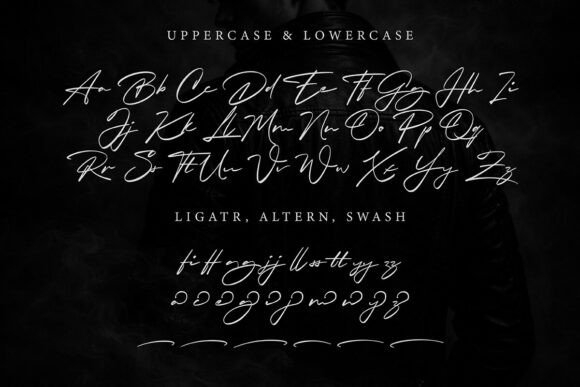 UPPERCASE & LOWERCASE
Aa Bb Cc Dd Ee Ff Gg Hh Ii
Jj Kk Ll Mm Nn Oo Pp Qq
Rr Ss Tt Uu Vv Ww Xx Yy Zz
LIGATR, ALTERN, SWASH
fi ff gg jj ll ss tt yy zz
a c e g i j m w y z